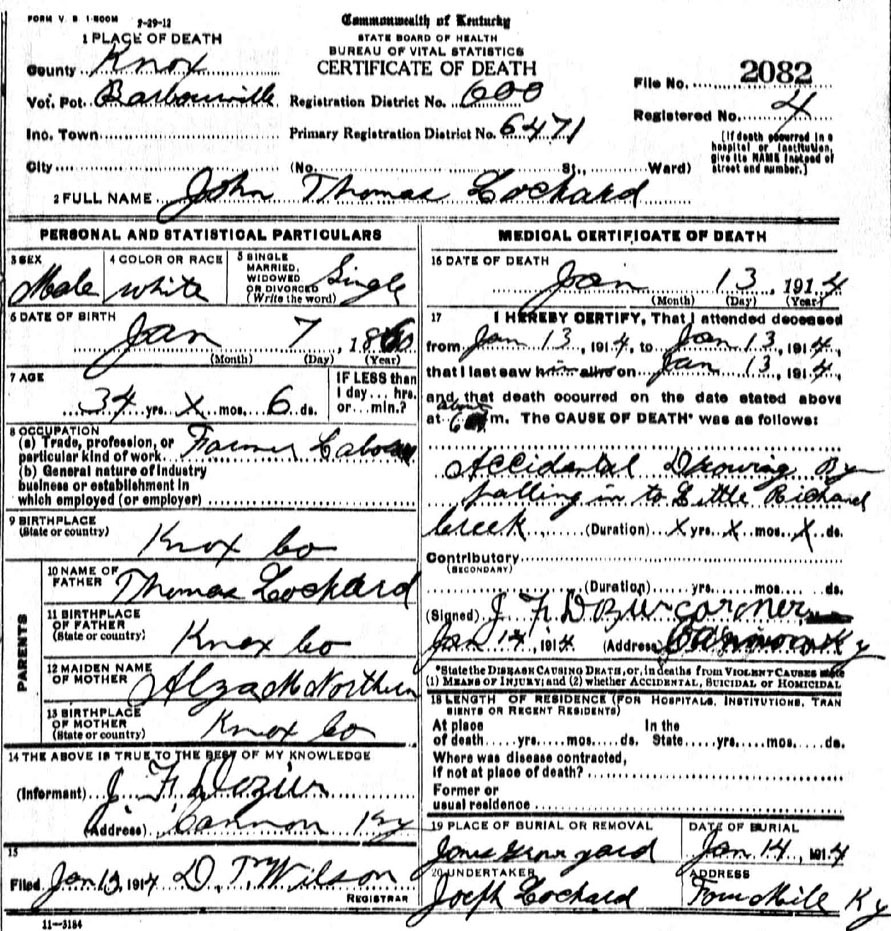 FORM V. S 1-500M 2-29-12
Commonwealth of Kentucky
STATE BOARD OF HEALTH
BUREAU OF VITAL STATISTICS
CERTIFICATE OF DEATH
1 PLACE OF DEATH
County Knox
Vot. Pot. Barbourville
Inc. Town
City
Registration District No. 600
Primary Registration District No. 6471
(No. St., Ward)
File No. 2082
Registered No. 4
[If death occurred in a
hospital or institution,
give its NAME instead of
street and number.]
2 FULL NAME John Thomas Lochard
PERSONAL AND STATISTICAL PARTICULARS
3 SEX
Male
4 COLOR OR RACE
white
5 SINGLE
MARRIED,
WIDOWED
OR DIVORCED
(Write the word)
Single
6 DATE OF BIRTH
Jan 7, 18
(Month) (Day) (Year)
7 AGE
34 yrs. X mos. 6 ds.
IF LESS than
1 day... hrs.
or... min.?
8 OCCUPATION
(a) Trade, profession, or
particular kind of work Farmer
(b) General nature of industry
business or establishment in
which employed (or employer)
9 BIRTHPLACE
(State or country)
Knox Co
PARENTS
10 NAME OF
FATHER Thomas Lochard
11 BIRTHPLACE
OF FATHER
(State or country)
Knox Co
12 MAIDEN NAME
OF MOTHER
13 BIRTHPLACE
OF MOTHER
(State or country)
Knox Co
14 THE ABOVE IS TRUE TO THE BEST OF MY KNOWLEDGE
(Informant) J. F. Dozier
(Address) Cannon Ky
15
Filed Jan 13, 1914 D. T. Wilson
REGISTRAR
11-3184
MEDICAL CERTIFICATE OF DEATH
16 DATE OF DEATH
Jan 13, 1914
(Month) (Day) (Year)
17 I HEREBY CERTIFY, That I attended deceased
from Jan 13, 1914, to Jan 13, 1914,
that I last saw him alive on Jan 13, 1914,
and that death occurred on the date stated above
at about 6 m. The CAUSE OF DEATH* was as follows:
Accidental Drowing By
falling in to Little Richard
Creek (Duration) X yrs. X mos. X ds.
Contributory
(SECONDARY)
(Duration) yrs. mos. ds.
(Signed) J. F. Dozier corner
Jan 14, 1914 (Address) Ky
*State the DISEASE CAUSING DEATH, or, in deaths from VIOLENT CAUSES state
(1) MEANS OF INJURY; and (2) whether ACCIDENTAL, SUICIDAL or HOMICIDAL
18 LENGTH OF RESIDENCE (FOR HOSPITALS, INSTITUTIONS, TRAN
SIENTS OR RECENT RESIDENTS)
At place In the
of death yrs. mos. ds. State yrs. mos. ds.
Where was disease contracted,
if not at place of death?
Former or
usual residence
19 PLACE OF BURIAL OR REMOVAL
Jones Grave yard
DATE OF BURIAL
Jan 14, 1914
20 UNDERTAKER
Joeph Lochard
ADDRESS
Four Mile Ky